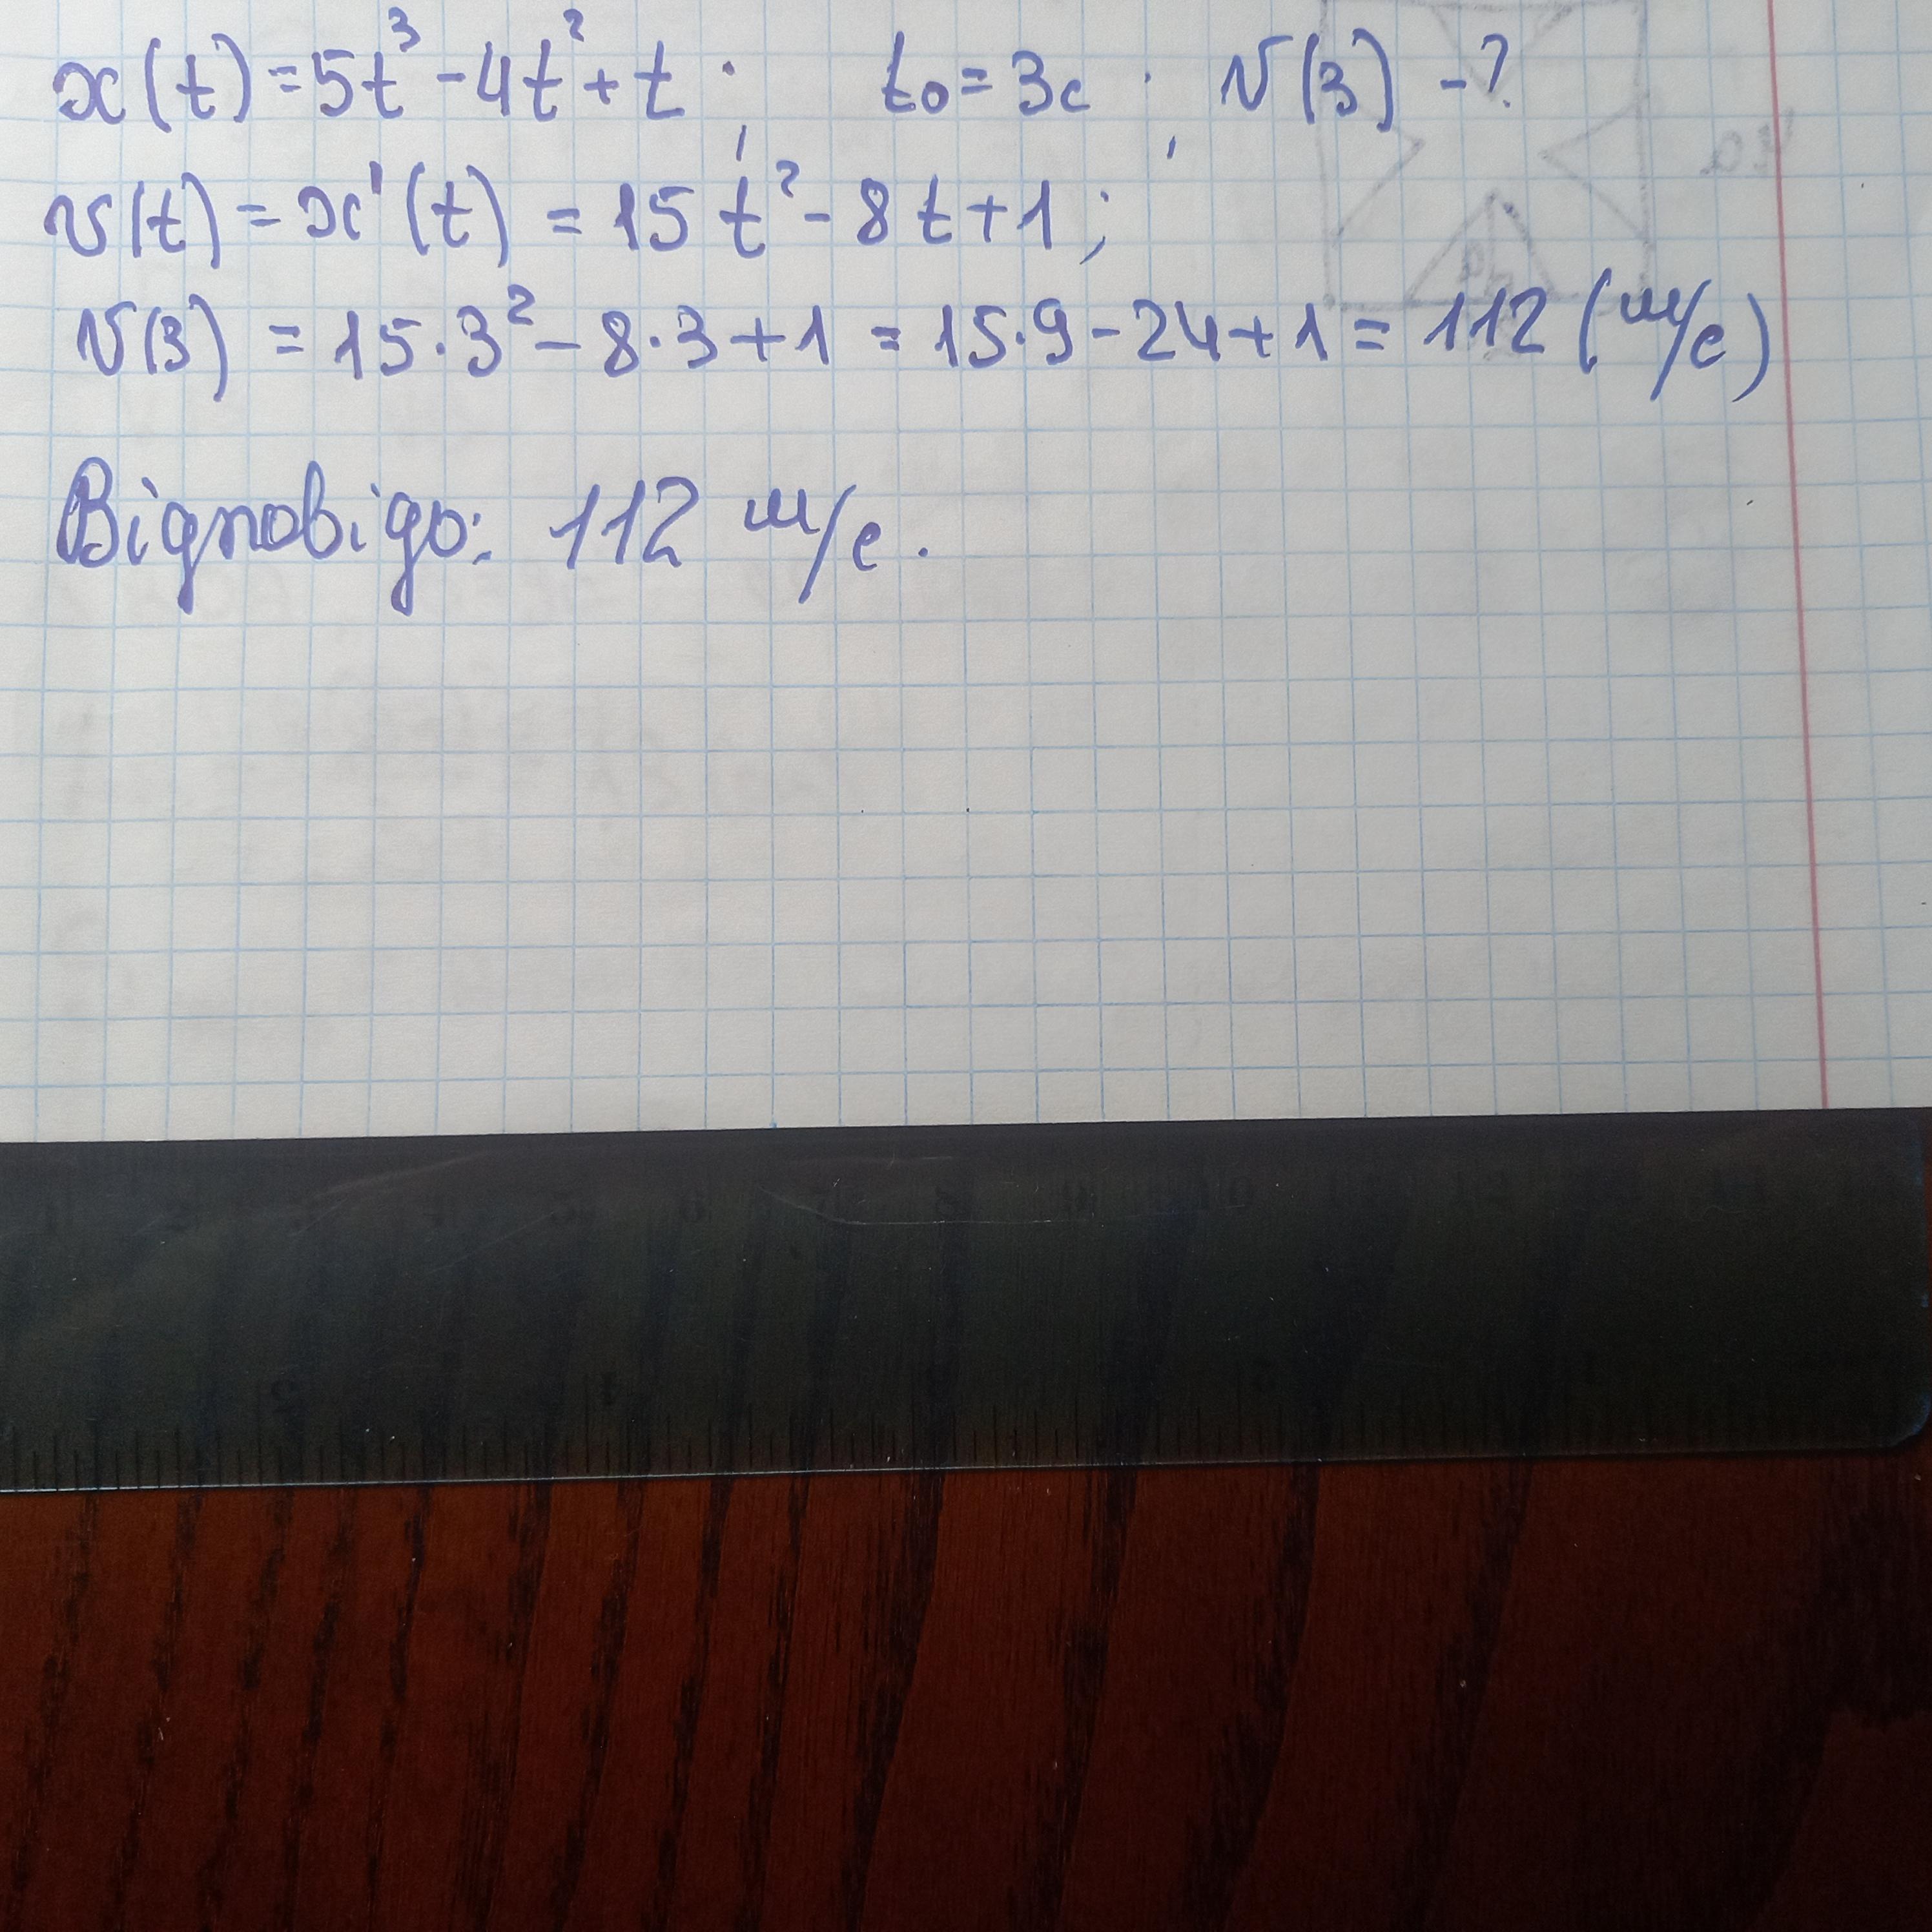 x(t) = 5t³ - 4t² + t ; t₀ = 3с ; v(3) - ?
v(t) = x'(t) = 15t² - 8t + 1 ;
v(3) = 15·3² - 8·3 + 1 = 15·9 - 24 + 1 = 112 (м/с)
Відповідь: 112 м/с.